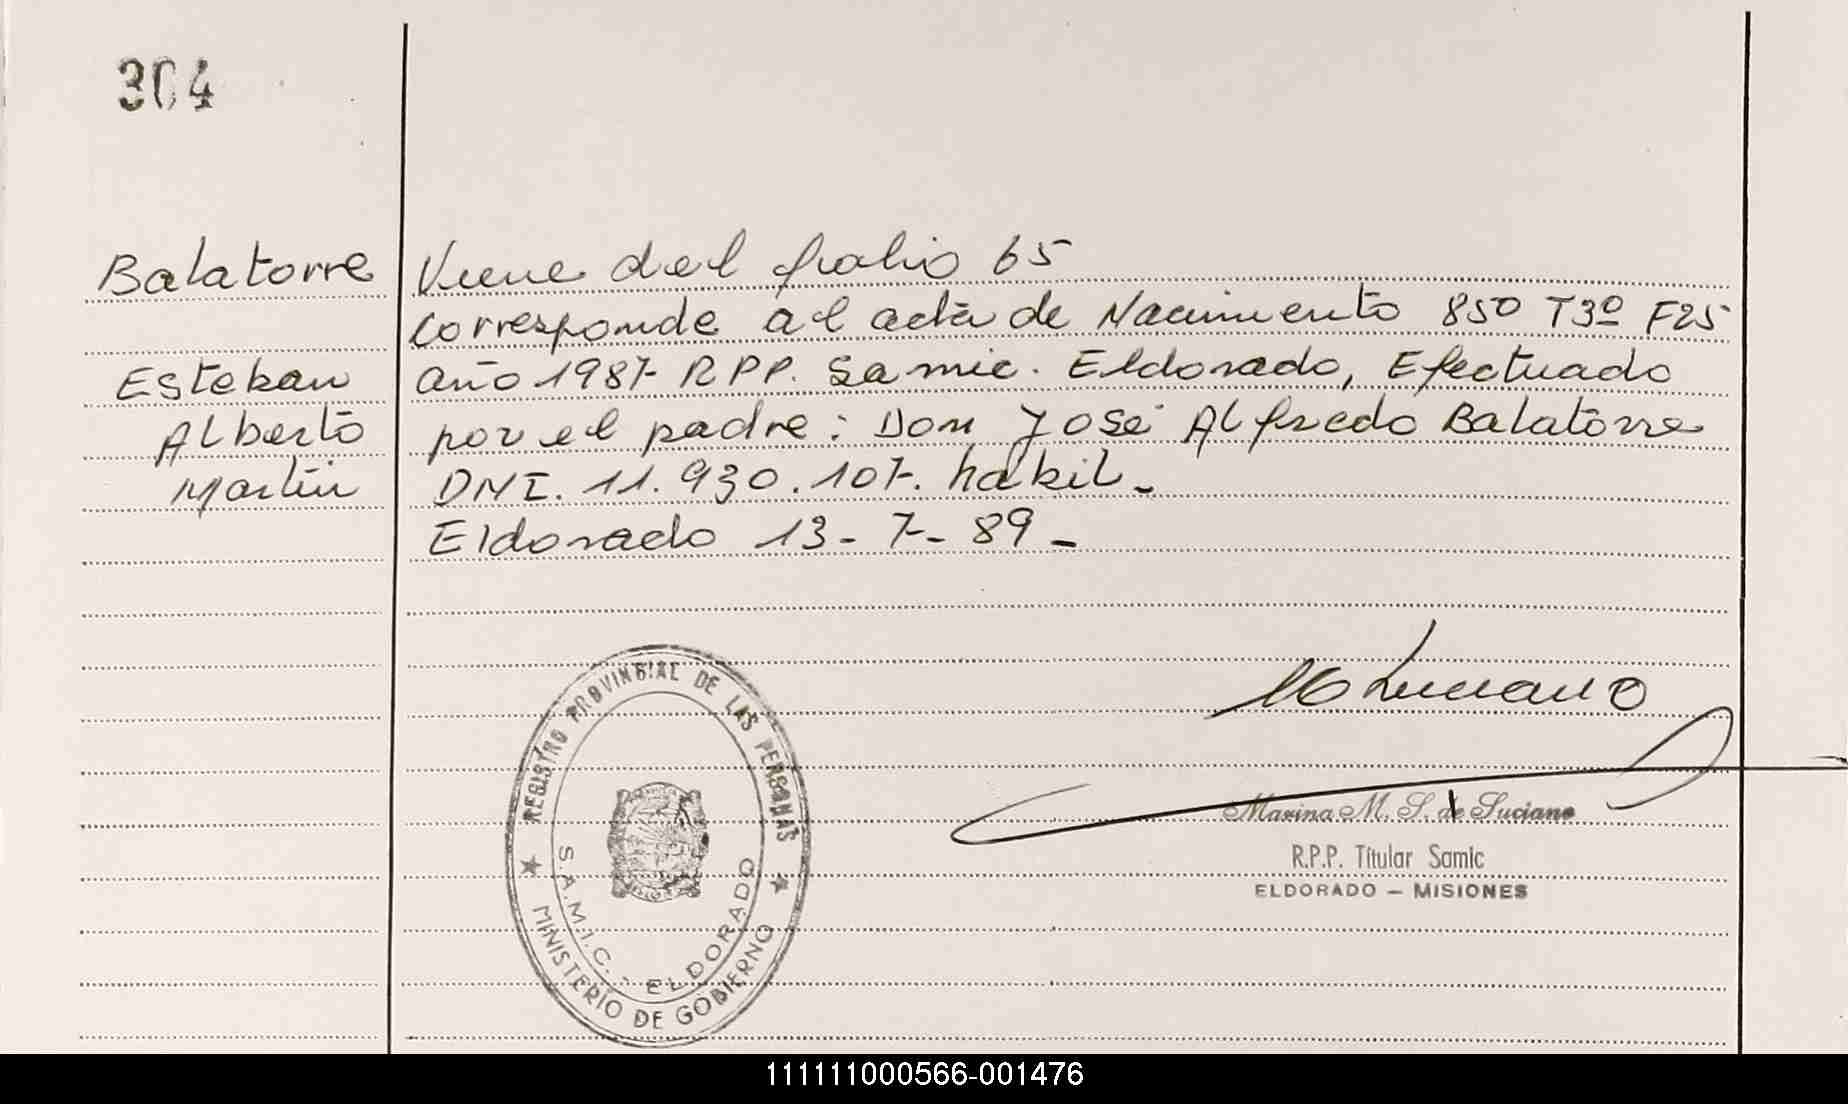 304
Balatorre
Esteban
Alberto
Martín
Viene del folio 65
Corresponde al acta de Nacimiento 850 T3º F25
año 1987- RPP. Samic. Eldorado, Efectuado
por el padre: Don José Alfredo Balatorre
DNI. 11.930.107-. habil-
Eldorado 13-7-89-
REGISTRO PROVINCIAL DE LAS PERSONAS
S.A.M.I.C. - ELDORADO
MINISTERIO DE GOBIERNO
Luciano
Marina M. S. de Luciano
R.P.P. Titular Samic
ELDORADO - MISIONES
111111000566-001476